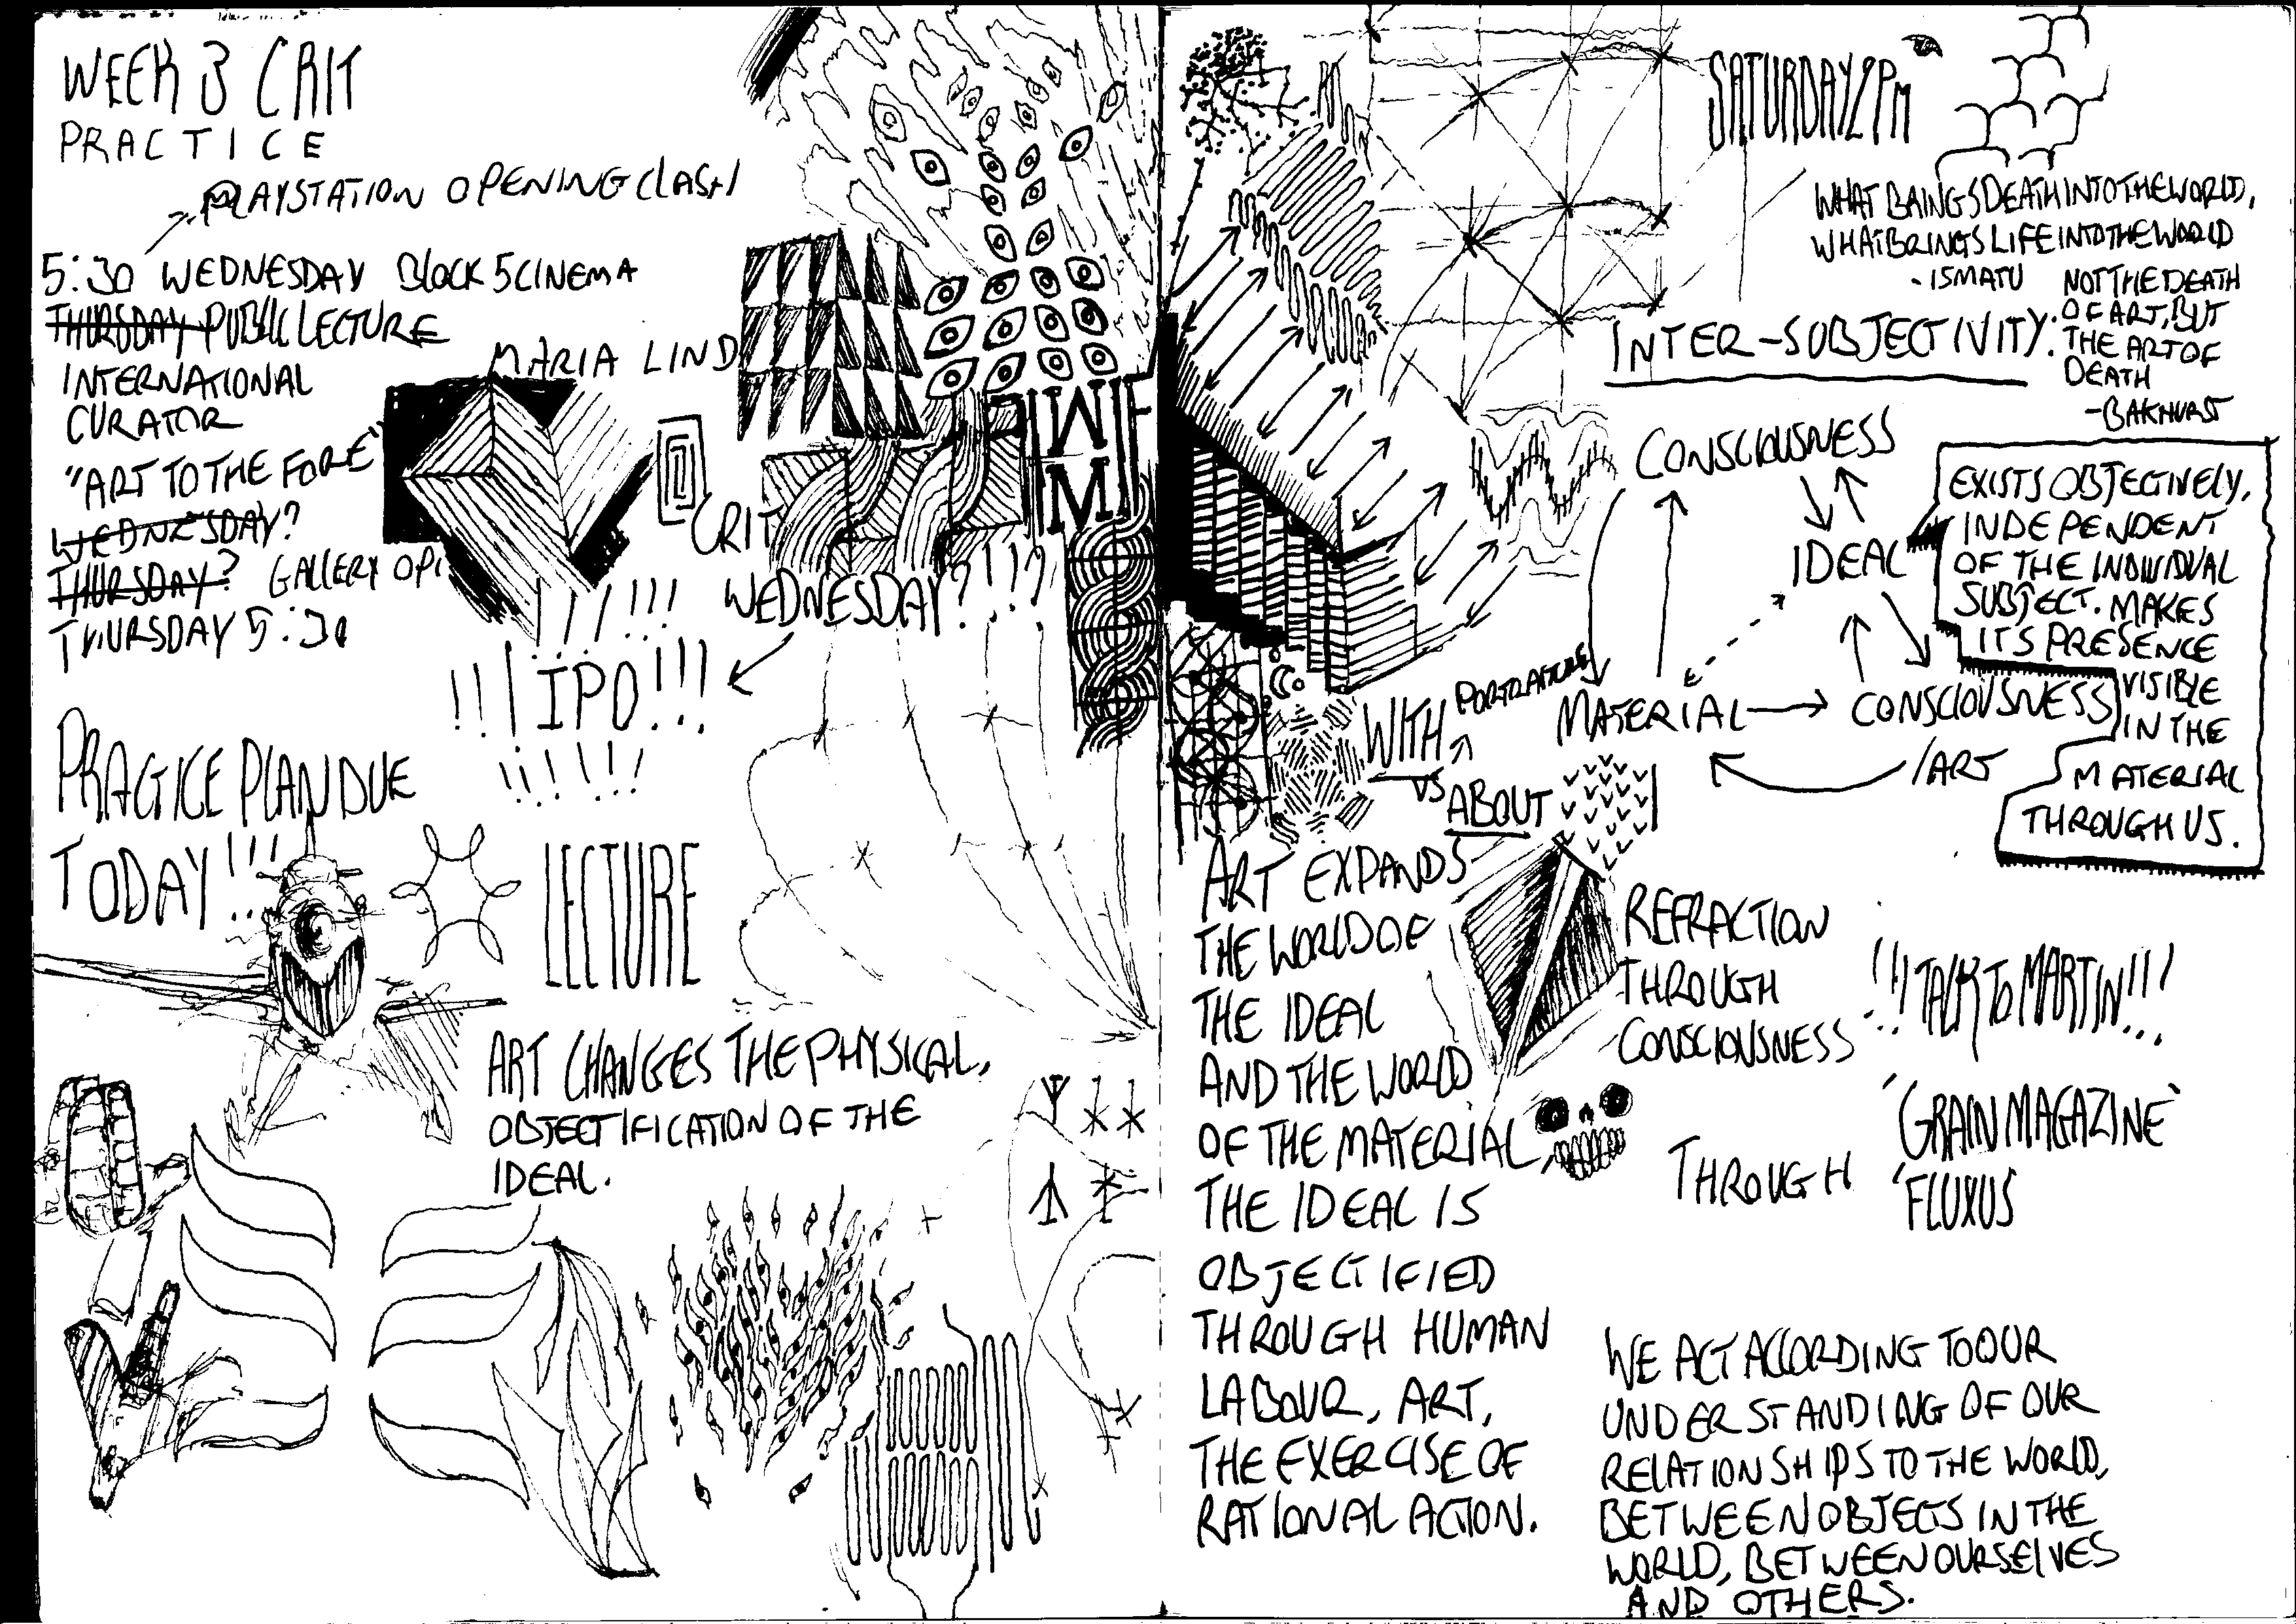 WEEK 3 CRIT
PRACTICE
PLAYSTATION OPENING CLASH
5:30 WEDNESDAY BLOCK 5 CINEMA
THURSDAY PUBLIC LECTURE
MARIA LIND
INTERNATIONAL
CURATOR
"ART TO THE FORE"
WEDNESDAY?
THURSDAY? GALLERY OP
THURSDAY 5:30
CRIT
WEDNESDAY?!!?
!!! IPO!!!
PRACTICE PLAN DUE
TODAY!!!
LECTURE
ART CHANGES THE PHYSICAL,
OBJECTIFICATION OF THE
IDEAL.
SATURDAY 2PM
WHAT BRINGS DEATH INTO THE WORLD,
WHAT BRINGS LIFE INTO THE WORLD
- ISMATU
NOT THE DEATH
OF ART, BUT
THE ART OF
DEATH
-BAKHURST
INTER-SUBJECTIVITY:
CONSCIOUSNESS
IDEAL
EXISTS OBJECTIVELY,
INDEPENDENT
OF THE INDIVIDUAL
SUBJECT. MAKES
ITS PRESENCE
VISIBLE
IN THE
MATERIAL
THROUGH US.
MATERIAL
CONSCIOUSNESS
/ART
WITH PORTRAITURE
VS ABOUT
ART EXPANDS
THE WORLD OF
THE IDEAL
AND THE WORLD
OF THE MATERIAL,
THE IDEAL IS
OBJECTIFIED
THROUGH HUMAN
LABOUR, ART,
THE EXERCISE OF
RATIONAL ACTION.
REFRACTION
THROUGH
CONSCIOUSNESS
!!! TALK TO MARTIN!!!
THROUGH
'GRAIN MAGAZINE'
'FLUXUS
WE ACT ACCORDING TO OUR
UNDERSTANDING OF OUR
RELATIONSHIPS TO THE WORLD,
BETWEEN OBJECTS IN THE
WORLD, BETWEEN OURSELVES
AND OTHERS.